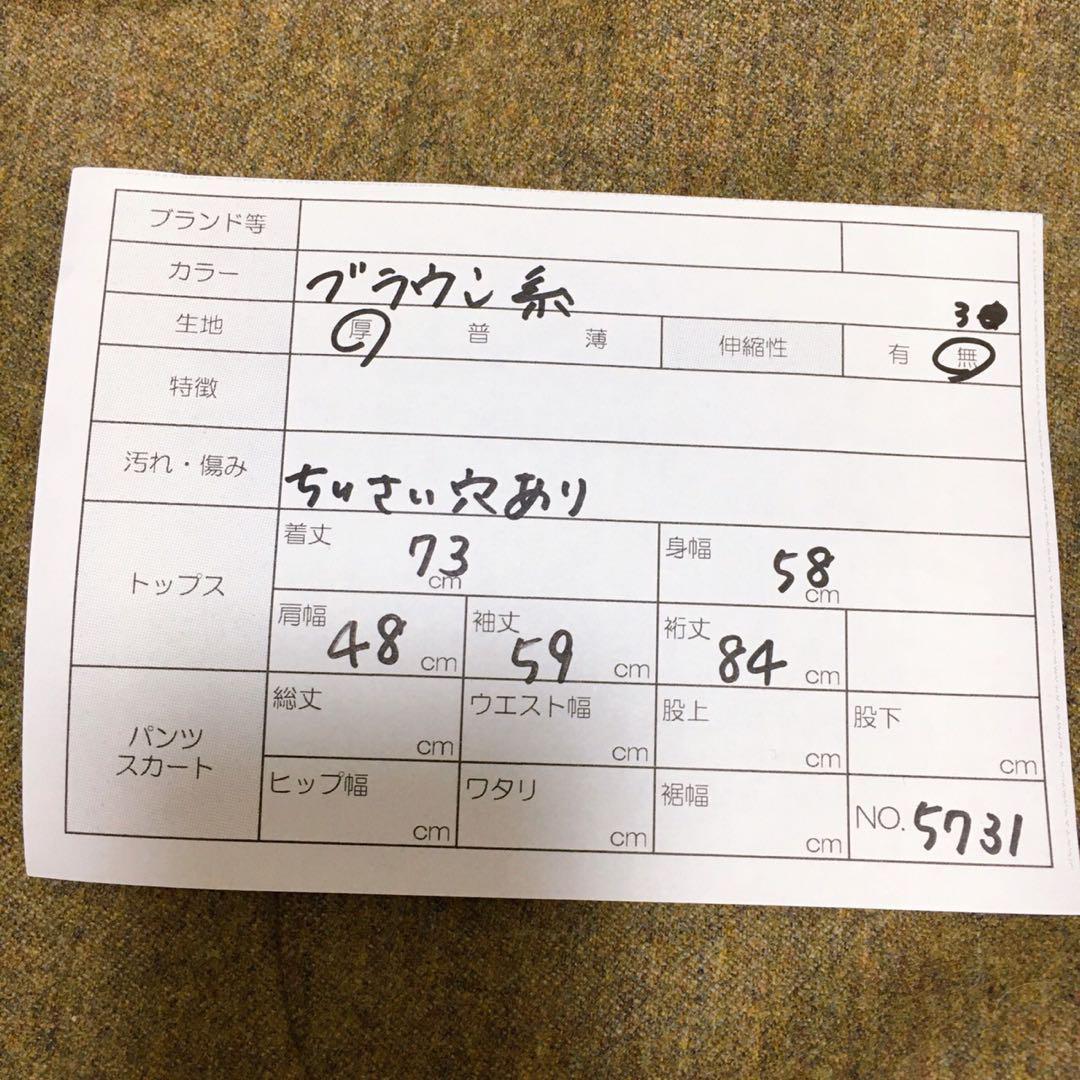 ブランド等
カラー ブラウン系 3
生地 厚 普 薄 伸縮性 有 無
特徴
汚れ・傷み ちいさい穴あり
トップス
着丈 73 cm 身幅 58 cm
肩幅 48 cm 袖丈 59 cm 裄丈 84 cm
パンツ
スカート
総丈 cm ウエスト幅 cm 股上 cm 股下 cm
ヒップ幅 cm ワタリ cm 裾幅 cm NO. 5731